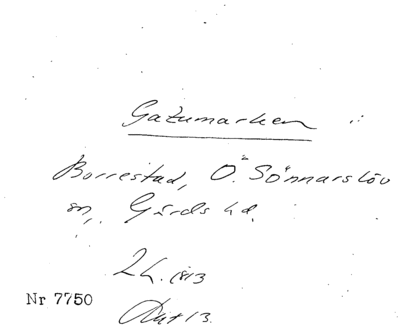 Gatumarken
Borrestad, Ö. Sönnarslöv
sn, Gärds hd.
2 h. 1813
Nr 7750
Akt 13.